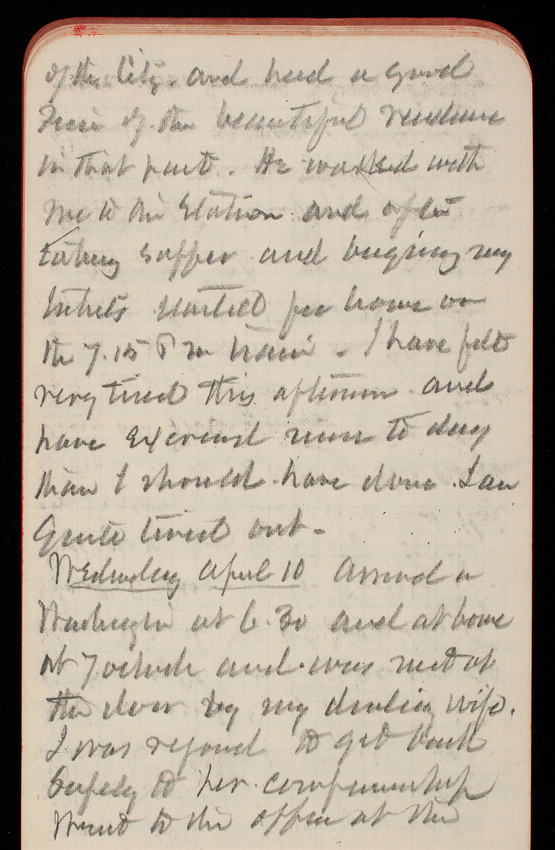 of the City. and had a good
view of the beautiful residences
in that part. He walked with
me to the Station and after
taking supper and buying my
tickets started for home on
the 7.15 P m train. I have felt
very tired this afternoon and
have exercised more to day
than I should have done. I am
quite tired out.
Wednesday April 10 arrived in
Washington at 6.30 and at home
at 7 oclock and was met at
the door by my darling wife.
I was rejoiced to get back
safely to her companionship
Went to the office at the